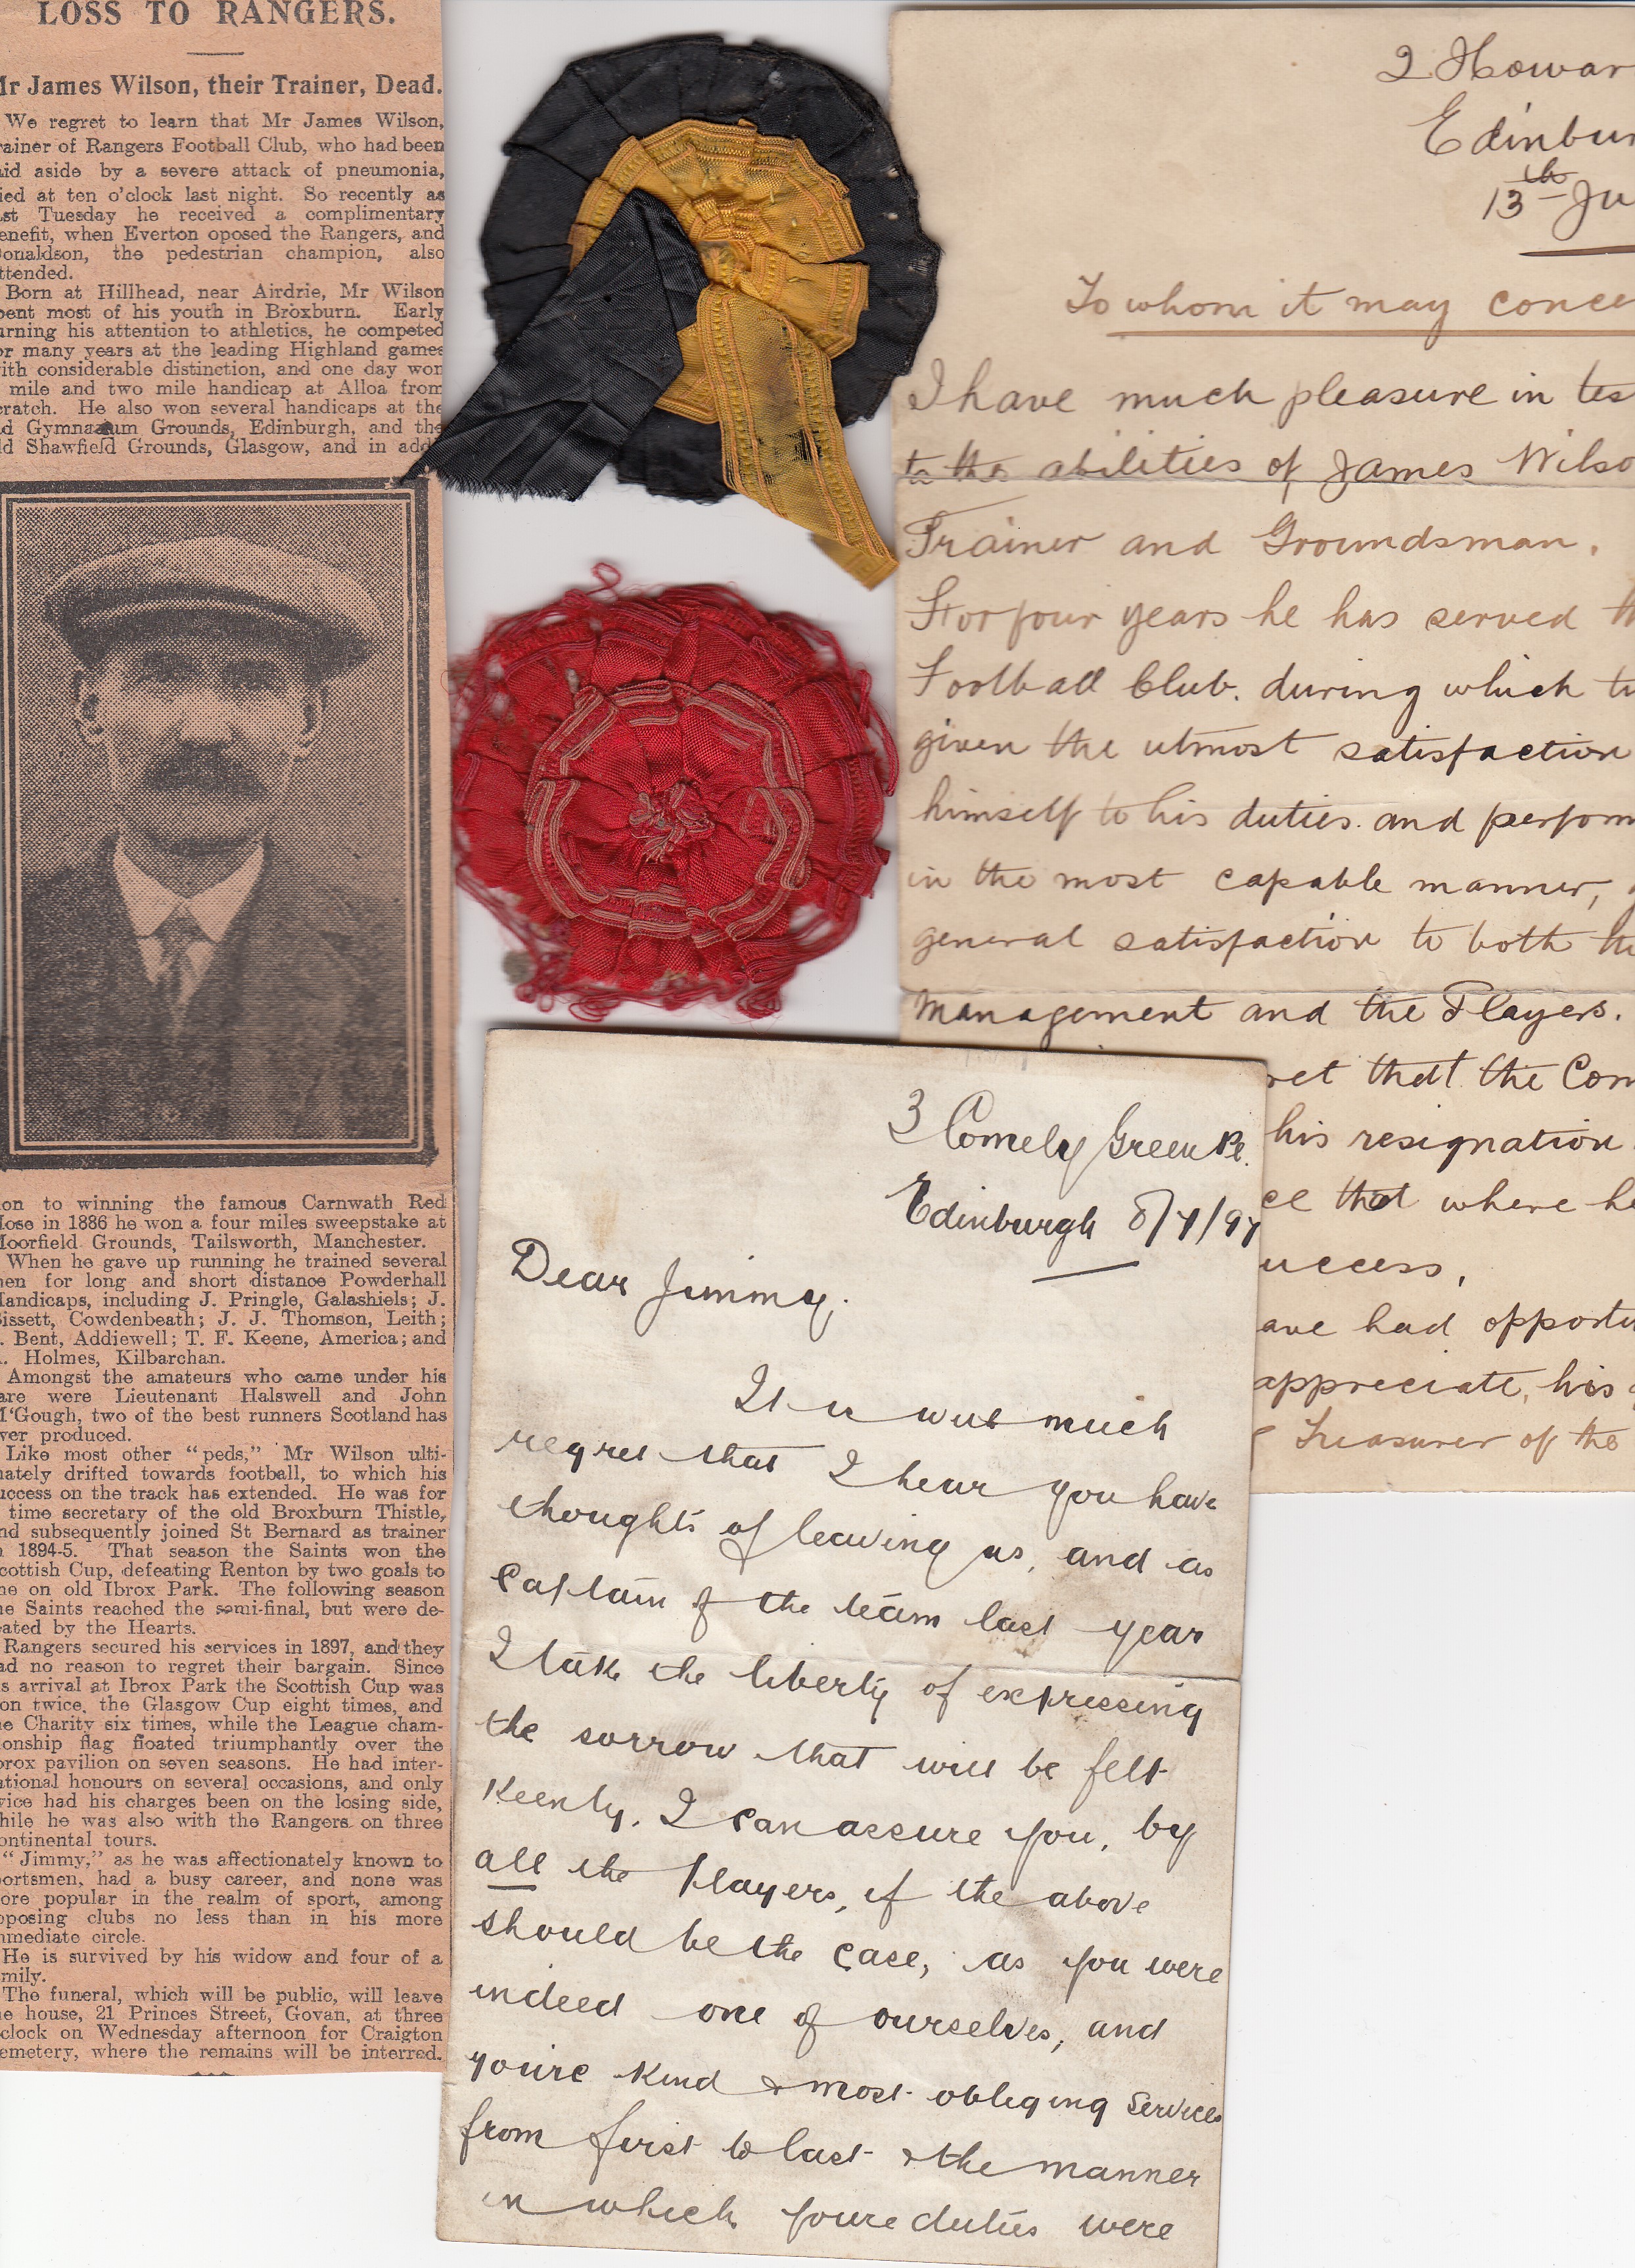 LOSS TO RANGERS.
Mr James Wilson, their Trainer, Dead.
We regret to learn that Mr James Wilson,
rainer of Rangers Football Club, who had been
aid aside by a severe attack of pneumonia,
ied at ten o'clock last night. So recently as
st Tuesday he received a complimentary
enefit, when Everton oposed the Rangers, and
onaldson, the pedestrian champion, also
ttended.
Born at Hillhead, near Airdrie, Mr Wilson
pent most of his youth in Broxburn. Early
urning his attention to athletics, he competed
or many years at the leading Highland games
ith considerable distinction, and one day won
mile and two mile handicap at Alloa from
cratch. He also won several handicaps at the
ld Gymnasium Grounds, Edinburgh, and the
ld Shawfield Grounds, Glasgow, and in add
ion to winning the famous Carnwath Red
Hose in 1886 he won a four miles sweepstake at
Moorfield Grounds, Tailsworth, Manchester.
When he gave up running he trained several
men for long and short distance Powderhall
Handicaps, including J. Pringle, Galashiels; J.
Bissett, Cowdenbeath; J. J. Thomson, Leith;
. Bent, Addiewell; T. F. Keene, America; and
. Holmes, Kilbarchan.
Amongst the amateurs who came under his
are were Lieutenant Halswell and John
M'Gough, two of the best runners Scotland has
ver produced.
Like most other "peds," Mr Wilson ulti-
mately drifted towards football, to which his
uccess on the track has extended. He was for
time secretary of the old Broxburn Thistle,
nd subsequently joined St Bernard as trainer
n 1894-5. That season the Saints won the
cottish Cup, defeating Renton by two goals to
ne on old Ibrox Park. The following season
he Saints reached the semi-final, but were de-
eated by the Hearts.
Rangers secured his services in 1897, and they
ad no reason to regret their bargain. Since
is arrival at Ibrox Park the Scottish Cup was
on twice, the Glasgow Cup eight times, and
he Charity six times, while the League cham-
ionship flag floated triumphantly over the
brox pavilion on seven seasons. He had inter-
ational honours on several occasions, and only
wice had his charges been on the losing side,
hile he was also with the Rangers on three
ontinental tours.
"Jimmy," as he was affectionately known to
portsmen, had a busy career, and none was
ore popular in the realm of sport, among
pposing clubs no less than in his more
mmediate circle.
He is survived by his widow and four of a
amily.
The funeral, which will be public, will leave
he house, 21 Princes Street, Govan, at three
'clock on Wednesday afternoon for Craigton
emetery, where the remains will be interred.
2 Howar
Edinbur
13th Ju
To whom it may conce
I have much pleasure in tes
to the abilities of James Wilso
Trainer and Groundsman.
For four years he has served th
Football Club, during which ti
given the utmost satisfaction
himself to his duties and perform
in the most capable manner,
general satisfaction to both the
Management and the Players.
ret that the Com
his resignation
ce that where he
uccess.
ave had opportu
appreciate, his
Treasurer of the
3 Comely Green Pl.
Edinburgh 8/7/97
Dear Jimmy,
It is with much
regret that I hear you have
thoughts of leaving us, and as
Captain of the team last year
I take the liberty of expressing
the sorrow that will be felt
Keenly, I can assure you, by
all the players, if the above
should be the case, as you were
indeed one of ourselves, and
youre kind & most obliging services
from first to last & the manner
in which youre duties were